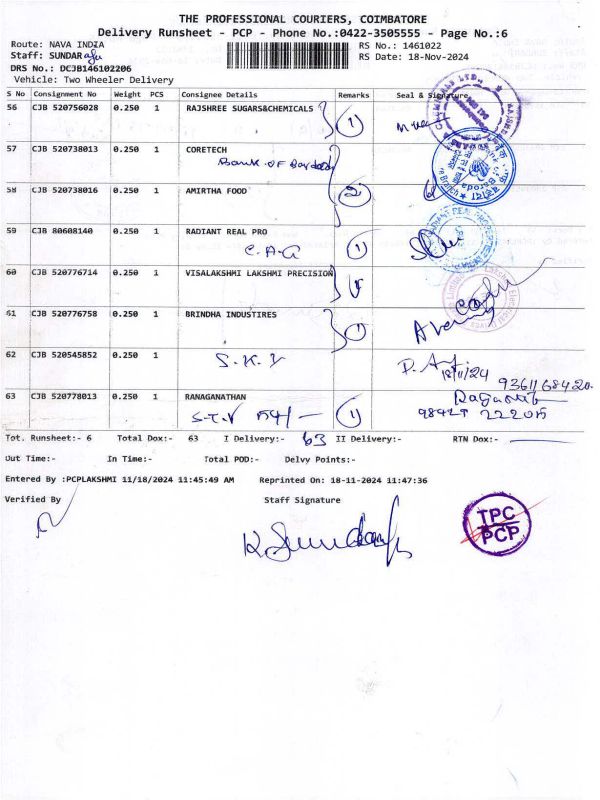 THE PROFESSIONAL COURIERS, COIMBATORE
Delivery Runsheet - PCP - Phone No.:0422-3505555 - Page No.:6
Route: NAVA INDIA RS No.: 1461022
Staff: SUNDAR RS Date: 18-Nov-2024
DRS No.: DCJB146102206
Vehicle: Two Wheeler Delivery
S No Consignment No Weight PCS Consignee Details Remarks Seal & Signature
56 CJB 520756028 0.250 1 RAJSHREE SUGARS&CHEMICALS
1
57 CJB 520738013 0.250 1 CORETECH
Bank of Baroda
58 CJB 520738016 0.250 1 AMIRTHA FOOD 2
59 CJB 80608140 0.250 1 RADIANT REAL PRO
C.A.G 1
60 CJB 520776714 0.250 1 VISALAKSHMI LAKSHMI PRECISION
61 CJB 520776758 0.250 1 BRINDHA INDUSTIRES
1
62 CJB 520545852 0.250 1
S.K.
18/11/24
63 CJB 520778013 0.250 1 RANAGANATHAN
S.T.V 1
98427 22205
Tot. Runsheet:- 6 Total Dox:- 63 I Delivery:- 63 II Delivery:- RTN Dox:-
Out Time:- In Time:- Total POD:- Delvy Points:-
Entered By :PCPLAKSHMI 11/18/2024 11:45:49 AM Reprinted On: 18-11-2024 11:47:36
Verified By Staff Signature
TPC
PCP